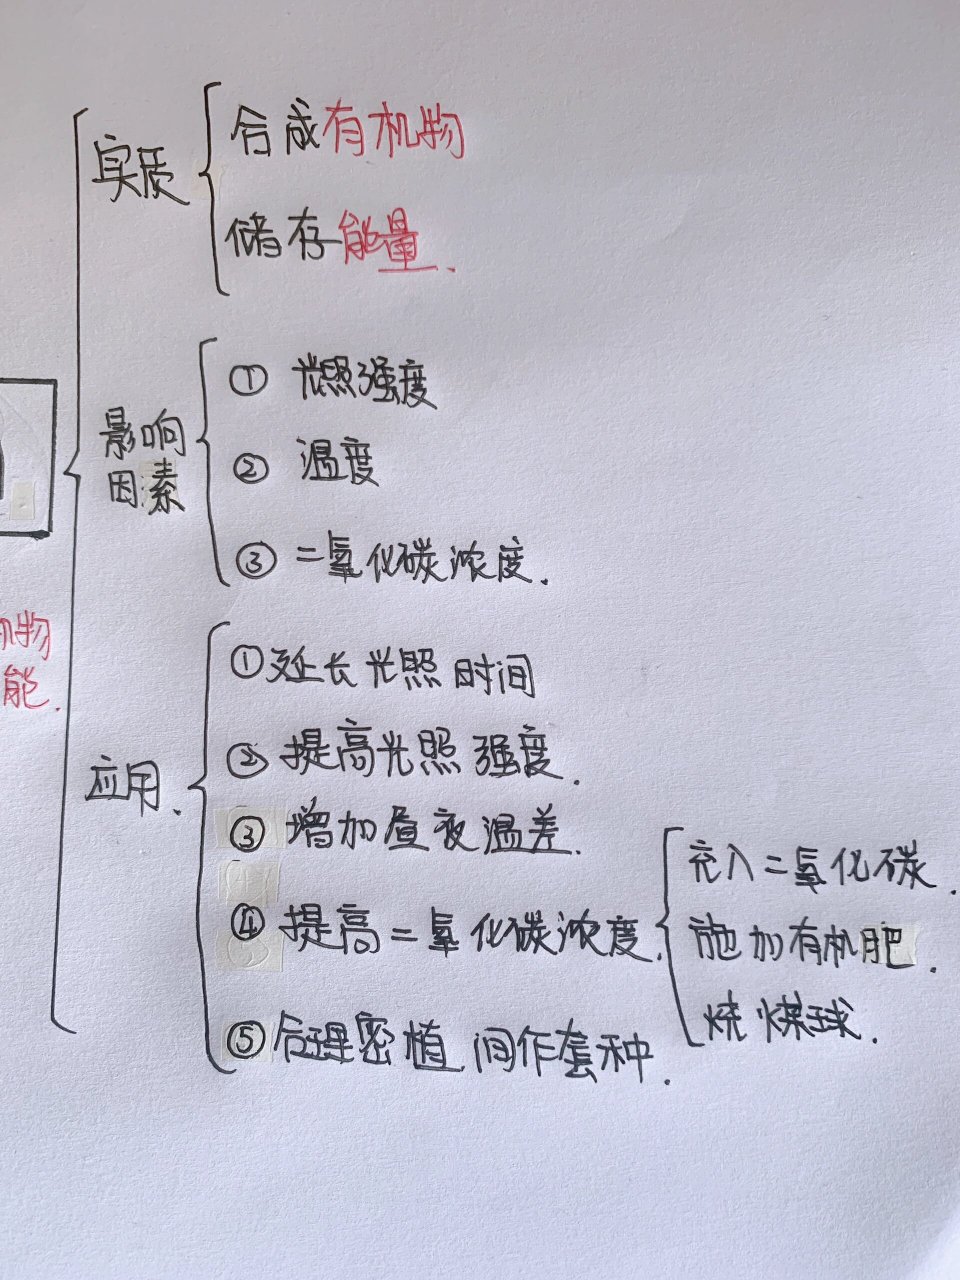 实质
合成有机物
储存能量.
影响
因素
① 光照强度
② 温度
③ 二氧化碳浓度.
机物
能.
应用.
①延长光照时间
②提高光照强度.
③增加昼夜温差.
④提高二氧化碳浓度.
充入二氧化碳.
施加有机肥.
烧煤球.
⑤合理密植 间作套种.